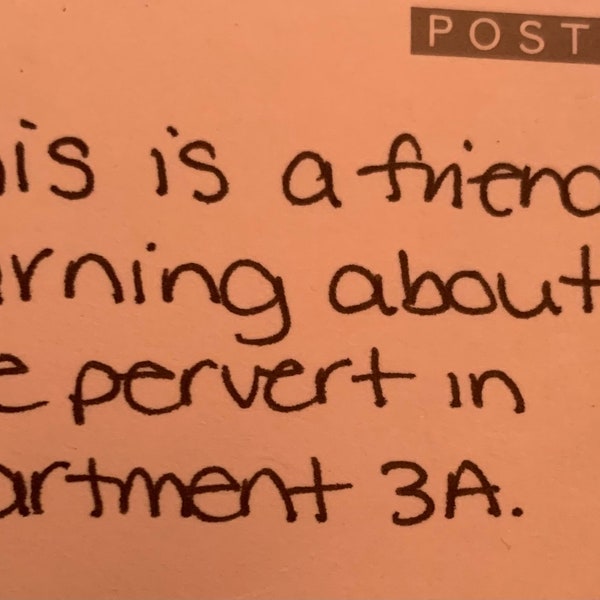 POST
his is a friend
arning about
e pervert in
artment 3A.